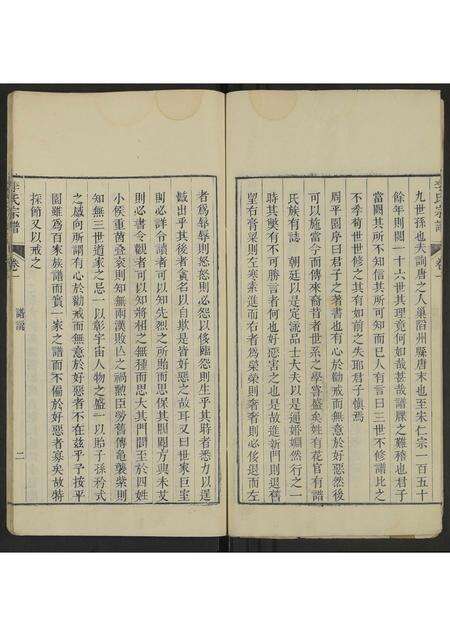 九世孫也夫詢唐之人巢滔州縣唐末也至宋仁宗一百五十
餘年則閱一十六世其理竟何如哉甚哉譜牒之難稽也君子
當闕其所不知信其所可知而已人有言曰三世不修譜比之
不孝荀世世修之其有如前之失耶君子愼焉
周平園序曰君子之著書也有心於勸戒而無意於好惡然後
可以施當今而傳來裔昔者世系之學嘗盛矣姓有花官有譜
氏族有誌 朝廷以是定流品士大夫以是通婚姻然行之一
時其獎有不可勝言者何也好惡害之也是故進新門則退舊
望右膏粱則左寒素進而右者為榮榮則者則必侈退而左
者爲辱辱則怒怒則必怨以侈臨怨則生乎其時者悉力以逞
憾出乎其後者貪名以自欺是皆好惡之故耳又曰世家巨室
則必詳令讀者可以知先烈之所貽而思保其閥閱方興未艾
則必書令觀者可以知將相之無種而思大其門閭至於四姓
小侯重茵叠衮則知無兩漢敗亾之禍勲臣勞舊傳龜襲紫則
知無三世道家之忌一以彰宇宙人物之盛一以貽子孫矜式
之感向所謂有心於勸戒而無意於好惡者不在茲乎予按平
園雖爲百家族譜而實一家之譜而不偏於好惡者寡矣故特
採節又以戒之
李氏宗譜 卷一 譜說 二